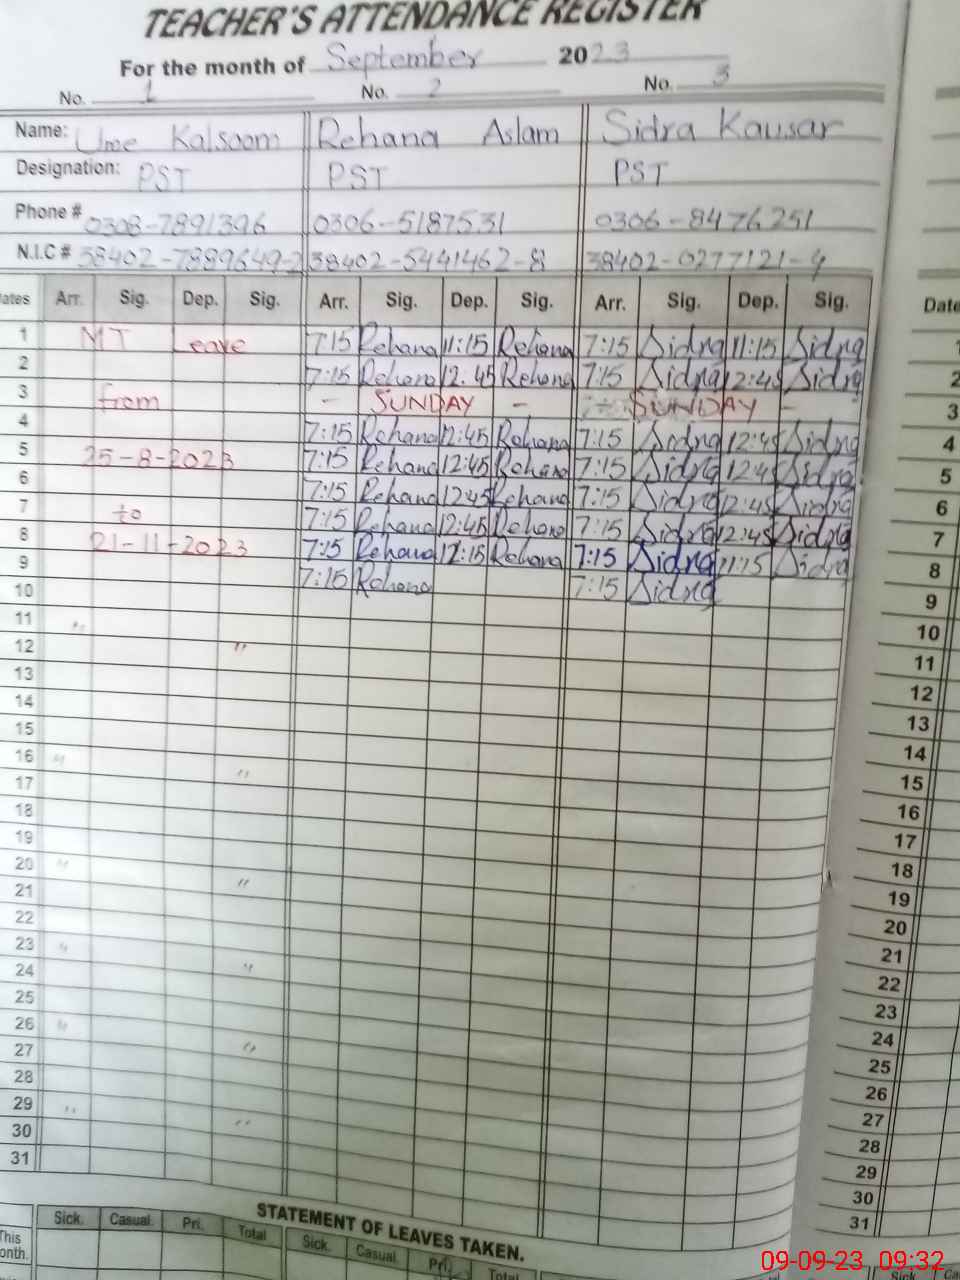 TEACHER'S ATTENDANCE REGISTER
For the month of September 2023
No. 1 No. 2 No. 3
Name: Ume Kalsoom Rehana Aslam Sidra Kausar
Designation: PST PST PST
Phone # 0308-7891396 0306-5187531 0306-8476251
N.I.C # 38402-7889649-2 38402-5441462-8 38402-0277121-4
Dates Arr. Sig. Dep. Sig. Arr. Sig. Dep. Sig. Arr. Sig. Dep. Sig. Date
1 MT Leave 7:15 Rehana 11:15 Rehana 7:15 Sidra 11:15 Sidra 1
2 7:15 Rehana 12:45 Rehana 7:15 Sidra 12:45 Sidra 2
3 from - SUNDAY - SUNDAY - 3
4 7:15 Rehana 12:45 Rehana 7:15 Sidra 12:45 Sidra 4
5 25-8-2023 7:15 Rehana 12:45 Rehana 7:15 Sidra 12:45 Sidra 5
6 7:15 Rehana 12:45 Rehana 7:15 Sidra 12:45 Sidra 6
7 to 7:15 Rehana 12:45 Rehana 7:15 Sidra 12:45 Sidra 7
8 21-11-2023 7:15 Rehana 12:15 Rehana 7:15 Sidra 11:15 Sidra 8
9 7:15 Rehana 7:15 Sidra 9
10 10
11 " 11
12 " 12
13 13
14 14
15 15
16 " 16
17 " 17
18 18
19 19
20 " 20
21 " 21
22 22
23 " 23
24 " 24
25 25
26 " 26
27 " 27
28 28
29 " 29
30 " 30
31 31
STATEMENT OF LEAVES TAKEN.
Sick. Casual Pri. Total Sick. Casual Pri. Total Sick
This Month.
09-09-23 09:32